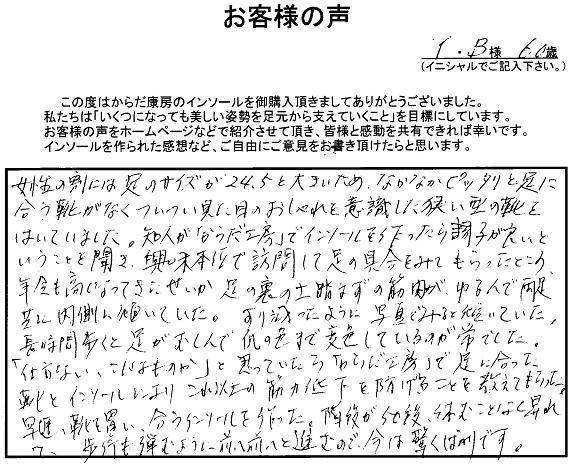 お客様の声
I・B様 60歳
(イニシャルでご記入下さい。)
この度はからだ康房のインソールを御購入頂きましてありがとうございました。
私たちは「いくつになっても美しい姿勢を足元から支えていくこと」を目標にしています。
お客様の声をホームページなどで紹介させて頂き、皆様と感動を共有できれば幸いです。
インソールを作られた感想など、ご自由にご意見をお書き頂けたらと思います。
女性の割には足のサイズが24.5と大きいため、なかなかピッタリと足に
合う靴がなくついつい見た目のおしゃれを意識した狭い型の靴を
はいていました。知人が「からだ工房」でインソールを作ったら調子がえいと
いうことを聞き、興味本位で訪問して足の具合をみてもらったところ、
年令も高くなってきたせいか足の裏の土踏まずの筋肉が、ゆるんで両足
共に内側に傾いていた。すり減ったように写真でみると傾いていた。
長時間歩くと足がむくんで肌の色まで変色しているのが常でした。
「仕方ない、こんなものか」と思っていたら「からだ工房」で足に合った
靴とインソールにより これ以上の筋力低下を防げることを教えてもらった。
早速、靴を買い、合うインソールを作った。階段が 休むことなく昇れ
て、歩行も弾むように前へ前へと進むので、今は驚くばかりです。